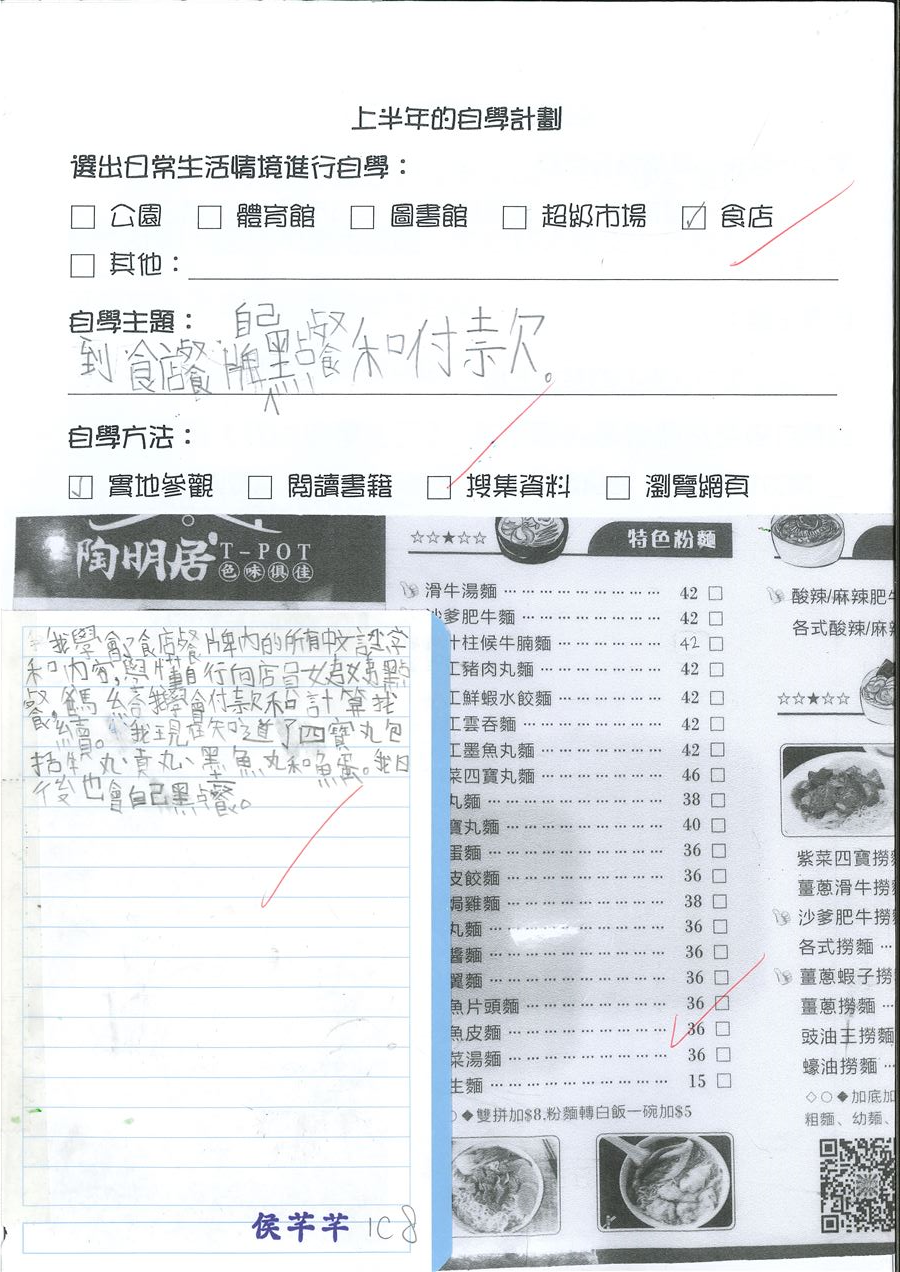 上半年的自學計劃
選出日常生活情境進行自學：
□ 公園 □ 體育館 □ 圖書館 □ 超級市場 ☑ 食店
□ 其他：
自學主題：
自己
到食店餐牌點餐和付款。
自學方法：
☑ 實地參觀 □ 閱讀書籍 □ 搜集資料 □ 瀏覽網頁
陶明居 T-POT
色味俱佳
我學會了食店餐牌內的所有中文認字
和內容,學懂自行向店員
餐,媽 我學會付款和計算找
續。我現在知道了四寶丸包
括牛丸、貢丸、墨魚丸和魚蛋。我日
後也會自己點餐。
侯芊芊 1C8
☆☆★☆☆ 特色粉麵
滑牛湯麵 42 □
沙爹肥牛麵 42 □
汁柱候牛腩麵 42 □
工豬肉丸麵 42 □
工鮮蝦水餃麵 42 □
工雲吞麵 42 □
工墨魚丸麵 42 □
菜四寶丸麵 46 □
丸麵 38 □
寶丸麵 40 □
蛋麵 36 □
皮餃麵 36 □
焗雞麵 38 □
丸麵 36 □
醬麵 36 □
翼麵 36 □
魚片頭麵 36 □
魚皮麵 36 □
菜湯麵 36 □
生麵 15 □
○◆雙拼加$8,粉麵轉白飯一碗加$5
酸辣/麻辣肥牛
各式酸辣/麻辣
☆☆★☆☆
紫菜四寶撈麵
薑蔥滑牛撈
沙爹肥牛撈
各式撈麵
薑蔥蝦子撈
薑蔥撈麵
豉油王撈麵
蠔油撈麵
◇○◆加底加
粗麵、幼麵、